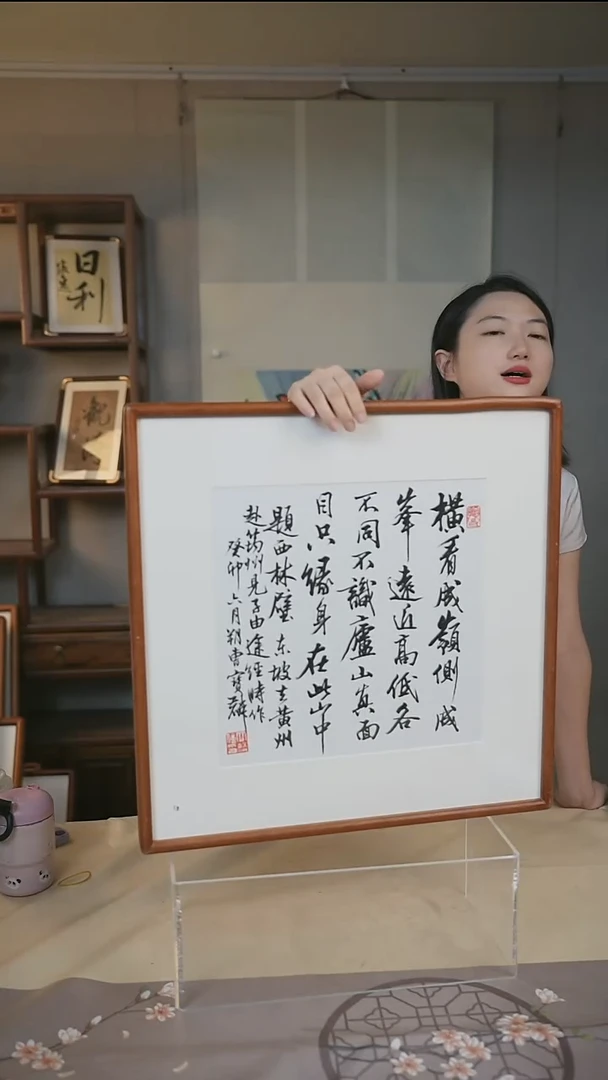 橫看成嶺側成
峯遠近高低各
不同不識廬山真面
目只緣身在此山中
題西林壁 東坡去黃州
赴筠州見子由途經時作
癸卯六月朔曹寶麟
日利